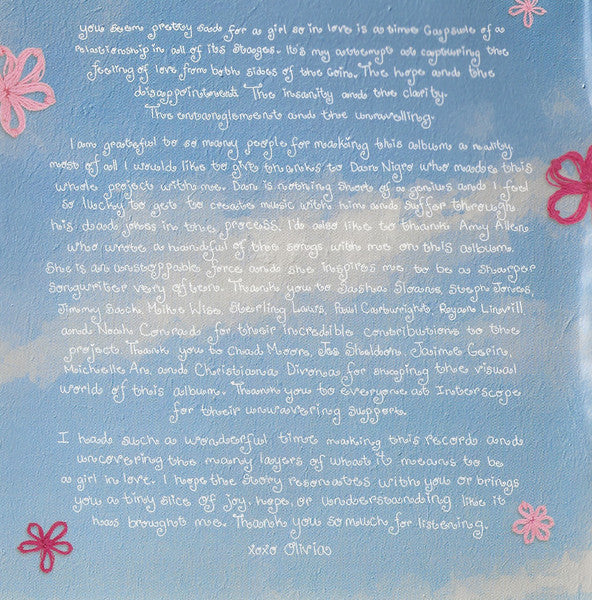 you seem pretty sad for a girl so in love is a time capsule of a
relationship in all of its stages. It's my attempt at capturing the
feeling of love from both sides of the coin. The hope and the
disappointment. The insanity and the clarity.
The entanglement and the unravelling.
I am grateful to so many people for making this album a reality,
most of all I would like to give thanks to Dan Nigro who made this
whole project with me. Dan is nothing short of a genius and I feel
so lucky to get to create music with him and suffer through
his dad jokes in the process. I'd also like to thank Amy Allen
who wrote a handful of the songs with me on this album.
She is an unstoppable force and she inspires me to be a sharper
songwriter very often. Thank you to Sasha Sloans, Steph Jones,
Jimmy Sack, Mike Wise, Sterling Laws, Paul Cartwright, Ryan Linvill
and Noah Conrad for their incredible contributions to the
project. Thank you to Chad Moore, Jas Sheldon, Jaime Gerin,
Michelle An, and Christiana Divona for shaping the visual
world of this album. Thank you to everyone at Interscope
for their unwavering support.
I had such a wonderful time making this record and
uncovering the many layers of what it means to be
a girl in love. I hope the story resonates with you or brings
you a tiny slice of joy, hope, or understanding like it
has brought me. Thank you so much for listening.
xoxo Olivia